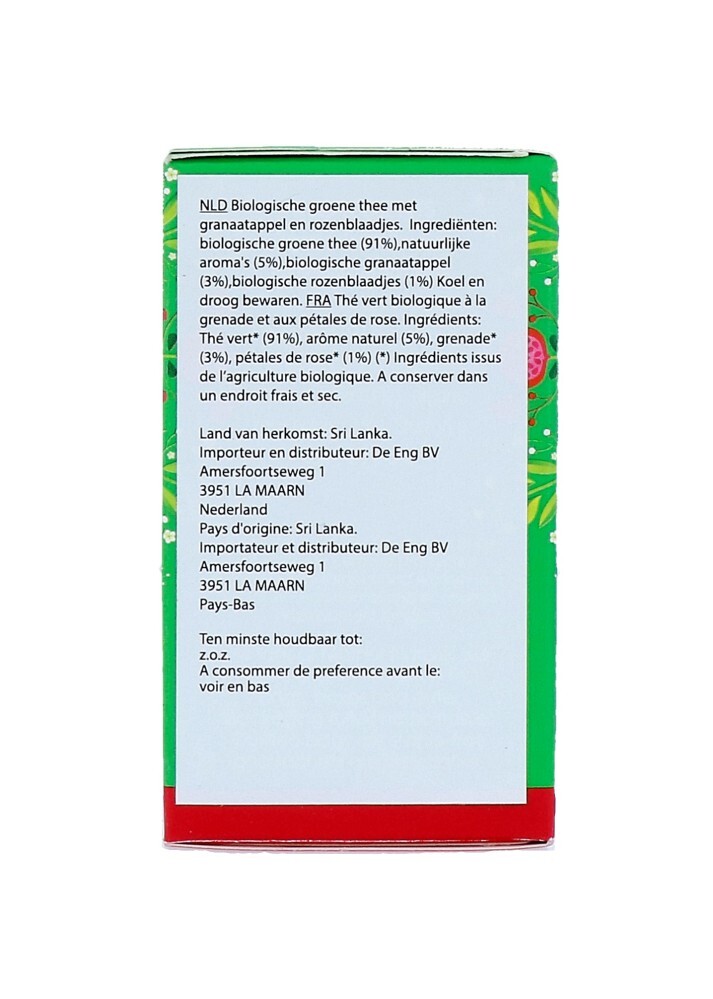 NLD Biologische groene thee met
granaatappel en rozenblaadjes. Ingrediënten:
biologische groene thee (91%),natuurlijke
aroma's (5%),biologische granaatappel
(3%),biologische rozenblaadjes (1%) Koel en
droog bewaren. FRA Thé vert biologique à la
grenade et aux pétales de rose. Ingrédients:
Thé vert* (91%), arôme naturel (5%), grenade*
(3%), pétales de rose* (1%) (*) Ingrédients issus
de l'agriculture biologique. A conserver dans
un endroit frais et sec.
Land van herkomst: Sri Lanka.
Importeur en distributeur: De Eng BV
Amersfoortseweg 1
3951 LA MAARN
Nederland
Pays d'origine: Sri Lanka.
Importateur et distributeur: De Eng BV
Amersfoortseweg 1
3951 LA MAARN
Pays-Bas
Ten minste houdbaar tot:
z.o.z.
A consommer de preference avant le:
voir en bas